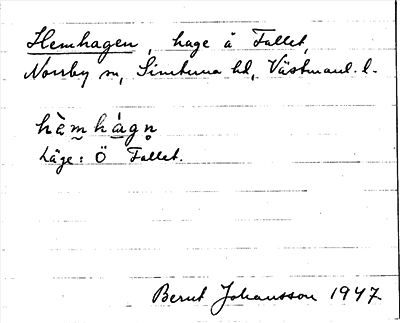 Hemhagen, hage å Fallet,
Norrby sn, Simtuna hd, Västmanl. l.
hè̀m̰hàgn̥
Läge: Ö Fallet.
Bernt Johansson 1947